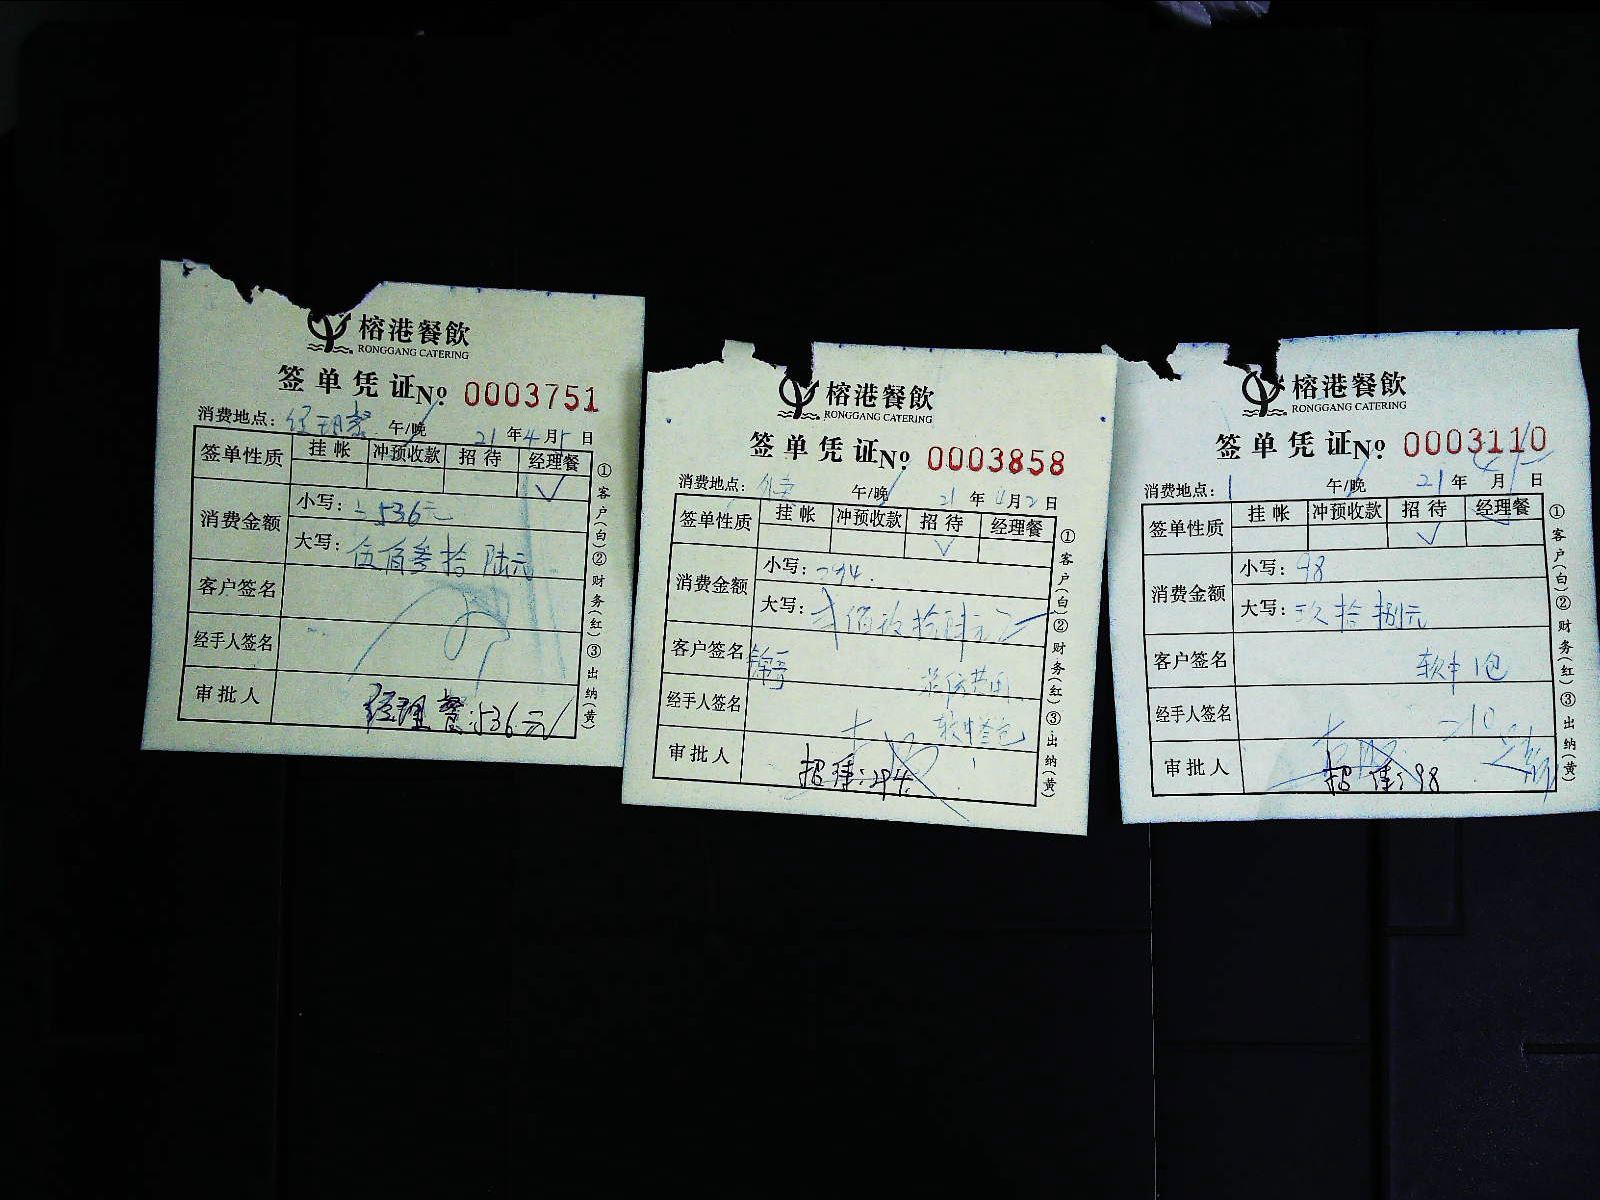 榕港餐飲
RONGGANG CATERING
签单凭证 № 0003751
消费地点: 经理餐 午/晚 21年4月5日
签单性质 挂帐 冲预收款 招待 经理餐
√
消费金额 小写: 536元
大写: 伍佰叁拾陆元
客户签名
经手人签名
审批人 经理餐:536元
①客户(白)②财务(红)③出纳(黄)
榕港餐飲
RONGGANG CATERING
签单凭证 № 0003858
消费地点: 午/晚 21年4月2日
签单性质 挂帐 冲预收款 招待 经理餐
√
消费金额 小写: 294.
大写: 贰佰玖拾肆元
客户签名
经手人签名
审批人 招待:294.
①客户(白)②财务(红)③出纳(黄)
榕港餐飲
RONGGANG CATERING
签单凭证 № 0003110
消费地点: 午/晚 21年4月日
签单性质 挂帐 冲预收款 招待 经理餐
√
消费金额 小写: 98
大写: 玖拾捌元
客户签名 软中1包
经手人签名
审批人 招待:98
①客户(白)②财务(红)③出纳(黄)